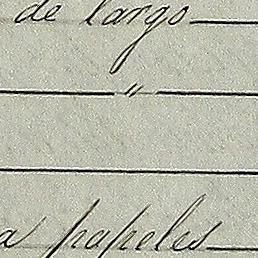 de largo
"
a papeles